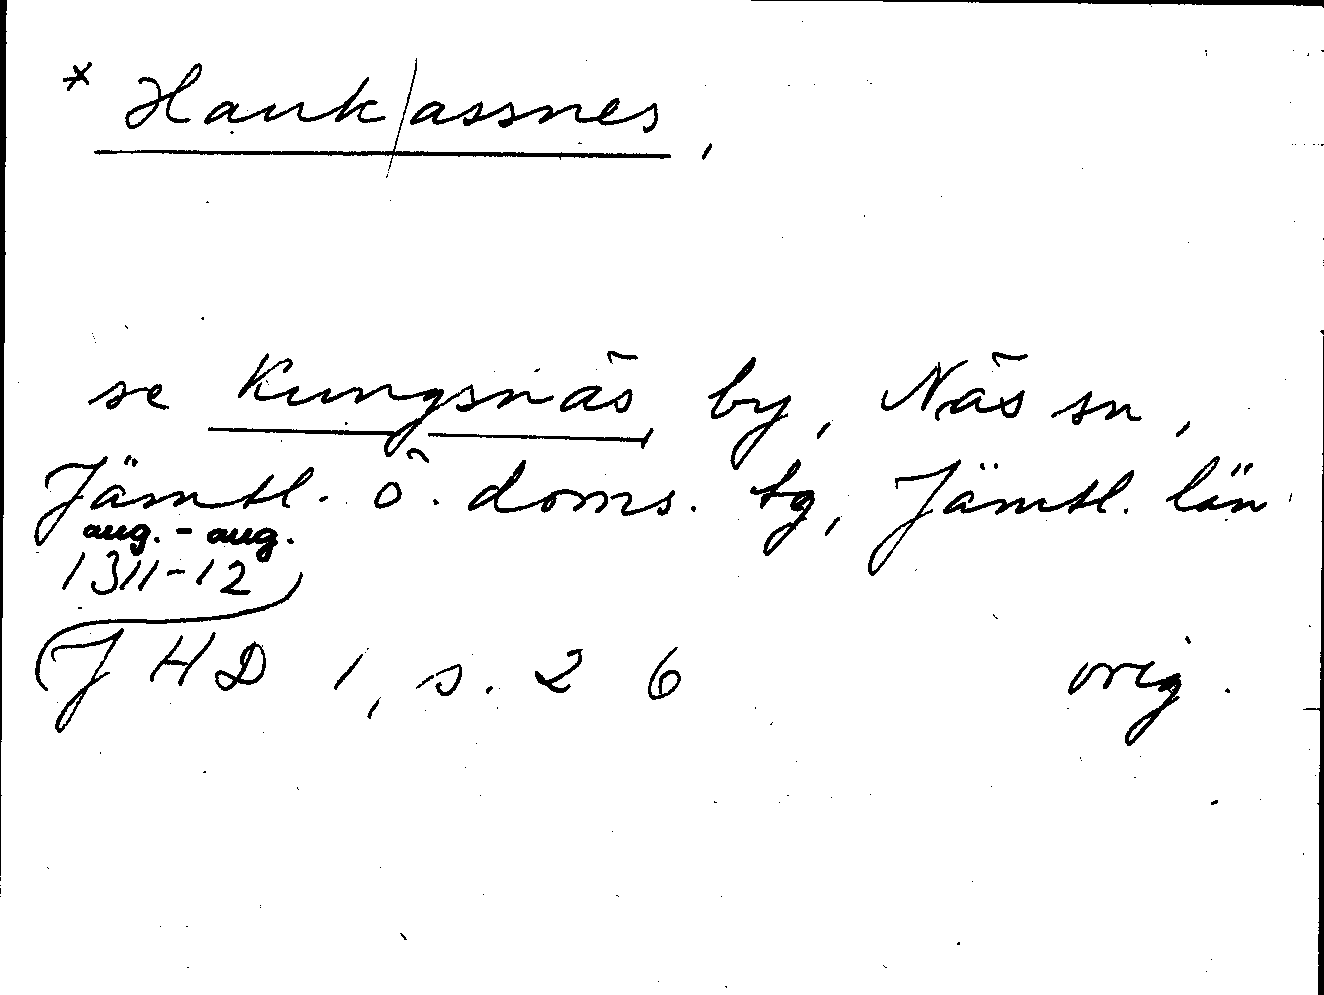 * Hauk/assnes,
se Kungsnäs by, Näs sn,
Jämtl. ö. doms. tg, Jämtl. län
aug. - aug.
1311-12
JHD 1, s. 26 orig.